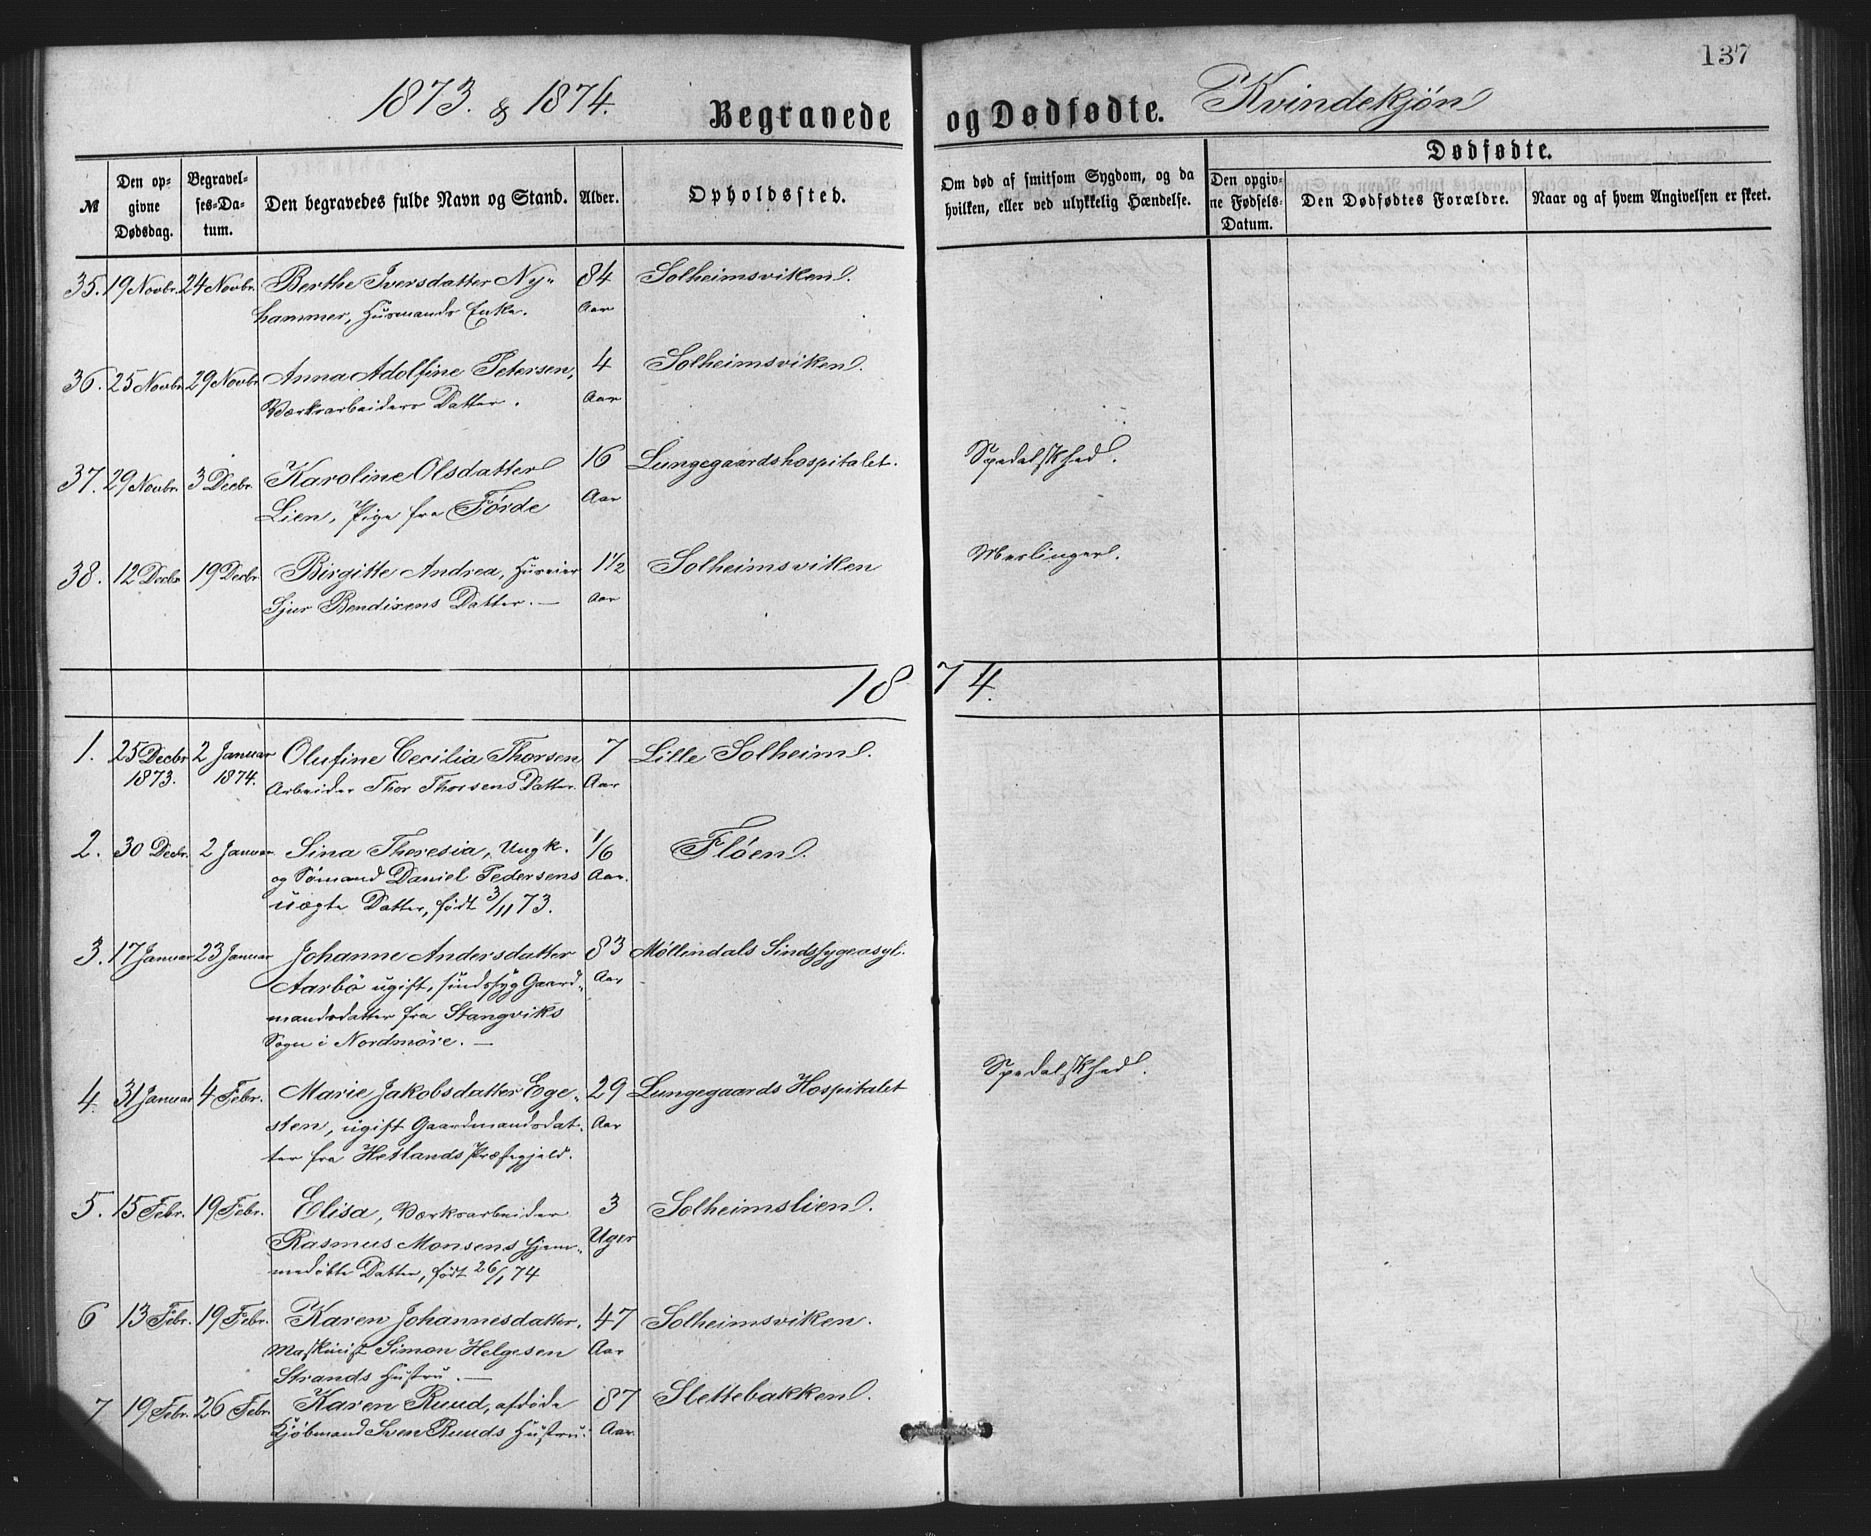 137
1873. & 1874. Begravede og Dødfødte. Kvindekjøn
№
Den op-
givne
Dødsdag.
Begravel-
ses-Da-
tum.
Den begravedes fulde Navn og Stand.
Alder.
Opholdssted.
Om død af smitsom Sygdom, og da
hvilken, eller ved ulykkelig Hændelse.
Dødfødte.
Den opgiv-
ne Fødsels-
Datum.
Den Dødfødtes Forældre.
Naar og af hvem Angivelsen er skeet.
35. 19 Novbr. 24 Novbr. Berthe Iversdatter Ny- 84 Solheimsviken.
hammer, Husmands Enke. Aar
36. 25 Novbr. 29 Novbr. Anna Adolfine Petersen, 4 Solheimsviken.
Værksarbeiders Datter. Aar
37. 29 Novbr. 3 Decbr. Karoline Olsdatter 16 Lungegaardshospitalet. Spedalskhed.
Lien, Pige fra Førde Aar
38. 12 Decbr 19 Decbr. Birgitte Andrea, Huseier 1 1/2 Solheimsviken Meslinger.
Sjur Bendixens Datter. — Aar
1874.
1. 25 Decbr 2 Januar Olufine Cecilia Thorsen 7 Lille Solheim.
1873. 1874. Arbeider Thor Thorsens Datter. Aar
2. 30 Decbr. 2 Januar Sina Theresia, Ungk. 1/6 Fløen.
og Sømand Daniel Pedersens Aar.
uægte Datter, født 3/11 73.
3. 17 Januar 23 Januar Johanne Andersdatter 83 Møllendals Sindssygeasyl.
Aarbø ugift, sindssyg Gaard- Aar
mandsdatter fra Stangviks
Sogn i Nordmøre. —
4. 31 Januar 4 Febr. Marie Jakobsdatter Ege- 29 Lungegaards Hospitalet Spedalskhed.
sten, ugift Gaardmandsdat- Aar
ter fra Hetlands Præstegjeld.
5. 15 Febr. 19 Febr. Elisa, Værksarbeider 3 Solheimslien.
Rasmus Monsens hjem- Uger
medøbte Datter, født 26/1 74
6 13 Febr. 19 Febr. Karen Johannesdatter, 47 Solheimsviken.
Maskinist Simon Helgesen Aar
Strands Hustru. —
7 19 Febr. 26 Febr. Karen Ruud, afdøde 87 Slettebakken.
Kjøbmand Sven Ruuds Hustru. Aar.